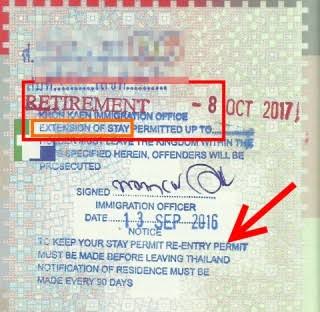 RETIREMENT - 8 OCT 2017
KHON KAEN IMMIGRATION OFFICE
EXTENSION OF STAY PERMITTED UP TO
MUST LEAVE THE KINGDOM WITHIN THE
SPECIFIED HEREIN, OFFENDERS WILL BE
PROSECUTED
SIGNED
IMMIGRATION OFFICER
DATE 13 SEP 2016
NOTICE
TO KEEP YOUR STAY PERMIT RE-ENTRY PERMIT
MUST BE MADE BEFORE LEAVING THAILAND
NOTIFICATION OF RESIDENCE MUST BE
MADE EVERY 90 DAYS